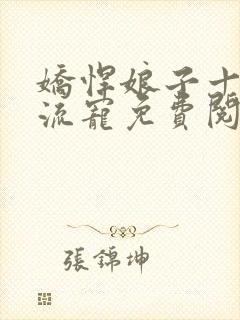 嬌悍娘子十
流寵免費閱
張錦坤